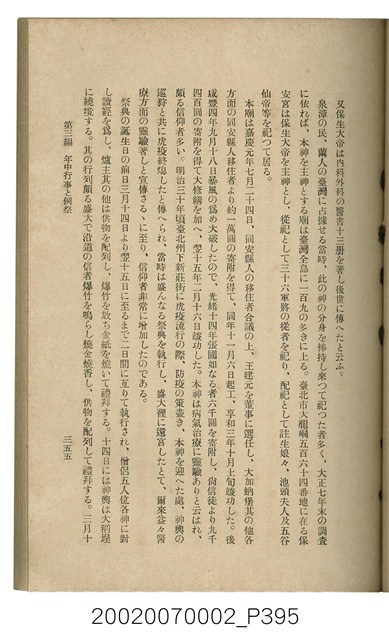 又保生大帝は內科外科の醫書十三册を著し後世に傳へたと云ふ。
泉漳の民、蘭人の臺灣に占據せる當時、此の神の分身を捧持し來つて祀つた者多く、大正七年末の調査
に依れば、本神を主神とする廟は臺灣全島に一百九の多きに上る。臺北市大龍峒五百六十四番地に在る保
安宮は保生大帝を主神とし、從祀として三十六軍將の從者を祀り、配祀として註生娘々、池頭夫人及五谷
仙帝等を祀つて居る。
本廟は嘉慶元年七月二十四日、同安縣人の移住者合議の上、王建元を董事に選任し、大加蚋堡其の他各
方面の同安縣人移住者より約一萬圓の寄附を得て、同年十一月六日起工、享和三年十月上旬竣功した。後
咸豐四年九月十八日暴風の爲め大破したので、光緖十四年張國如なる者六千圓を寄附し、尙信徒より九千
四百圓の寄附を得て大修繕を加へ、翌十五年二月十六日竣功した。本神は病氣治療に靈驗ありと云はれ、
頗る信仰者多い。明治三十年頃臺北州下新莊街に虎疫流行の際、防疫の策盡き、本神を迎へた處、神輿の
巡狩と共に虎疫終熄したと傳へられ、當時は盛んなる祭典を執行し、盛大裡に還宮したとて、爾來益々醫
療方面の靈驗著しと宣傳さるゝに至り、信仰者非常に增加したのである。
祭典の誕生日の前日三月十四日より翌十五日に至るまで二日間に亙りて執行され、僧侶五人位各神に對
し讀經を爲し、爐主其の他は供物を配列し、爆竹を放ち金紙を燒いて禮拜する。十四日には神輿は大稻埕
に繞境する。其の行列頗る盛大で沿道の信者爆竹を鳴らし燒金燒香し、供物を配列して禮拜する。三月十
第三編 年中行事と例祭
三五五
20020070002_P395